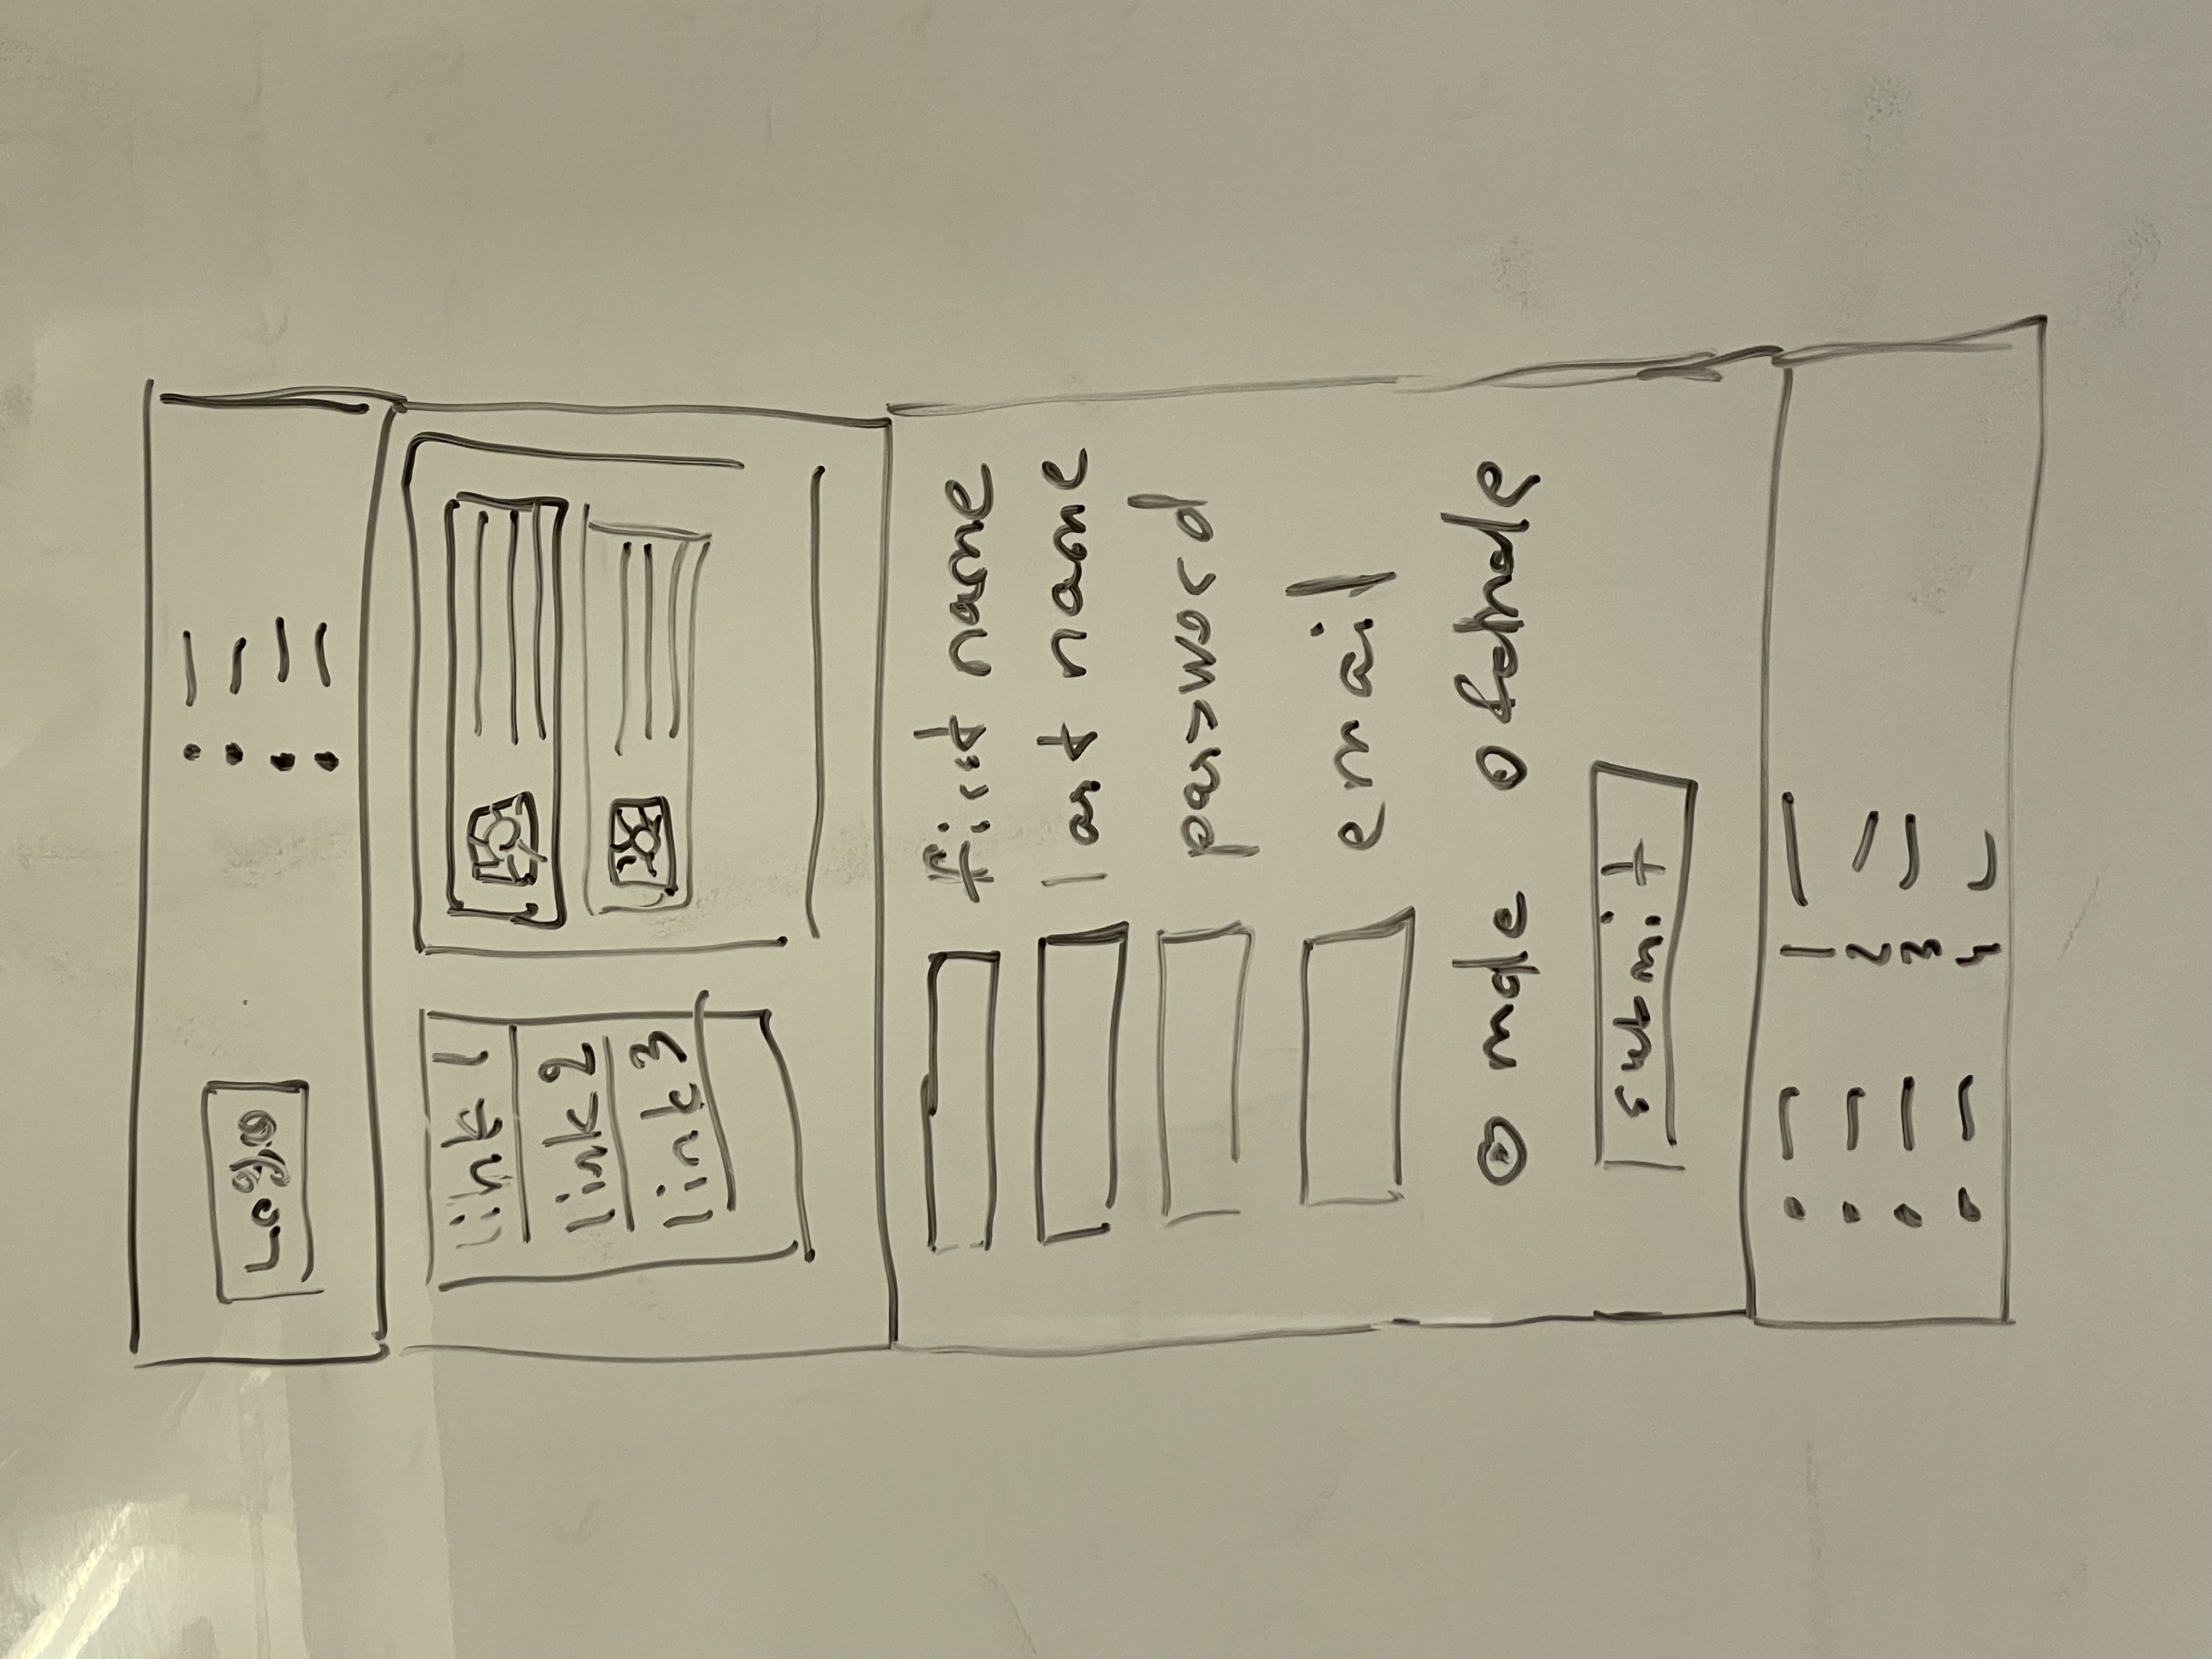 Logo
link 1
link 2
link 3
first name
last name
password
email
male female
submit
1
2
3
4